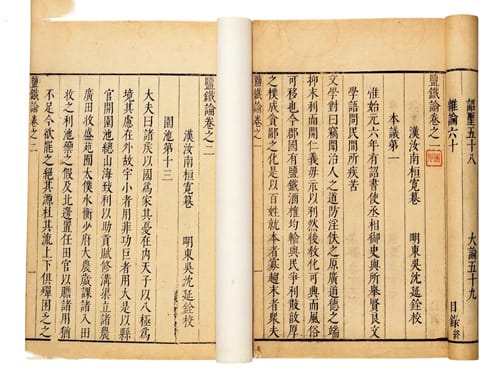 詔聖五十八　大論五十九
雜論六十　目錄終
鹽鐵論卷之一
漢汝南桓寬　明東吳沈延銓校
本議第一
惟始元六年有詔書使丞相御史與所舉賢良文
學語問民間所疾苦
文學對曰竊聞治人之道防淫佚之原廣道德之端
抑末利而開仁義毋示以利然後教化可興而風俗
可移也今郡國有鹽鐵酒榷均輸與民爭利散敦厚
之樸成貪鄙之化是以百姓就本者寡趨末者衆夫
鹽鐵論卷之二
漢汝南桓寬　明東吳沈延銓校
園池第十三
大夫曰諸侯以國爲家其憂在内天子以八極爲
境其慮在外故宇小者用菲功巨者用大是以縣
官開園池總山海致利以助貢賦修溝渠立諸農
廣田牧盛苑囿太僕水衡少府大農歲課諸入田
牧之利池籞之假及北邊置任田官以贍諸用猶
不足今欲罷之絕其源杜其流上下俱殫困乏之